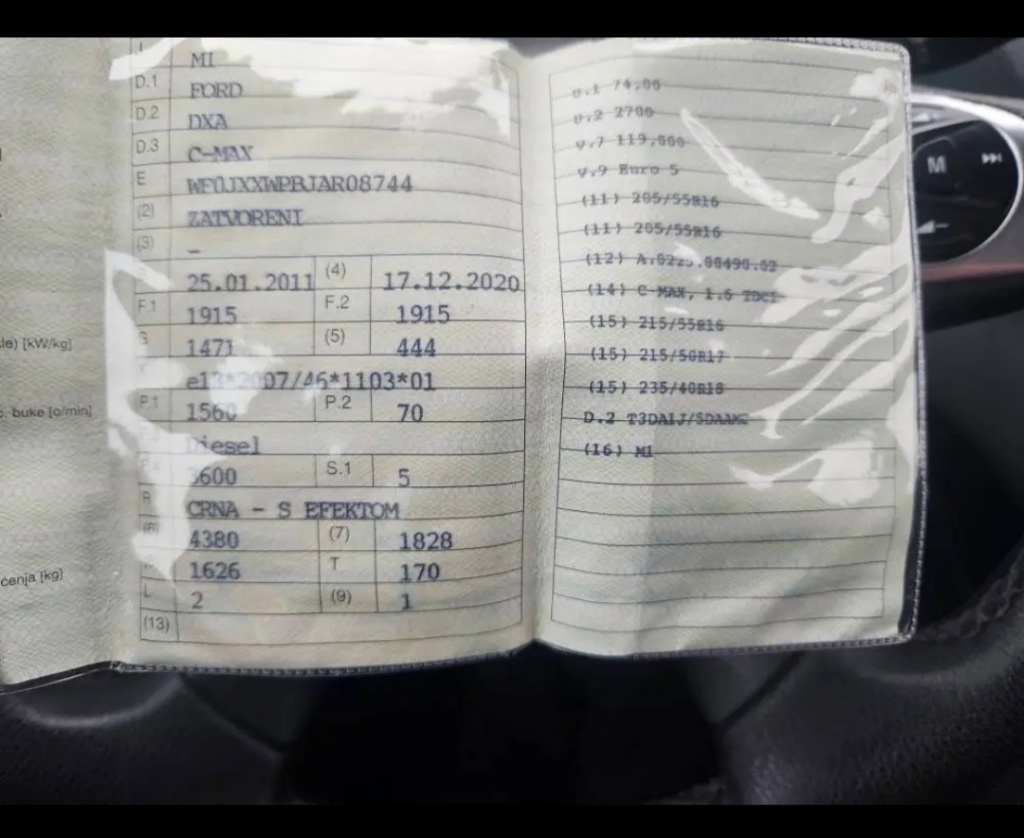 J MI
D.1 FORD
D.2 DXA
D.3 C-MAX
E WF0JXXWPBJAR08744
(2) ZATVORENI
(3) –
25.01.2011 (4) 17.12.2020
F.1 1915 F.2 1915
G 1471 (5) 444
e13*2007/46*1103*01
P.1 1560 P.2 70
Diesel
3600 S.1 5
R CRNA - S EFEKTOM
(6) 4380 (7) 1828
1626 T 170
L 2 (9) 1
(13)
le) [kW/kg]
buke [o/min]
cenja [kg]
U.1 74,00
U.2 2700
V.7 119,000
V.9 Euro 5
(11) 205/55R16
(11) 205/55R16
(12) A.0225.00490.02
(14) C-MAX, 1.6 TDCI
(15) 215/55R16
(15) 215/50R17
(15) 235/40R18
D.2
(16) M1
M